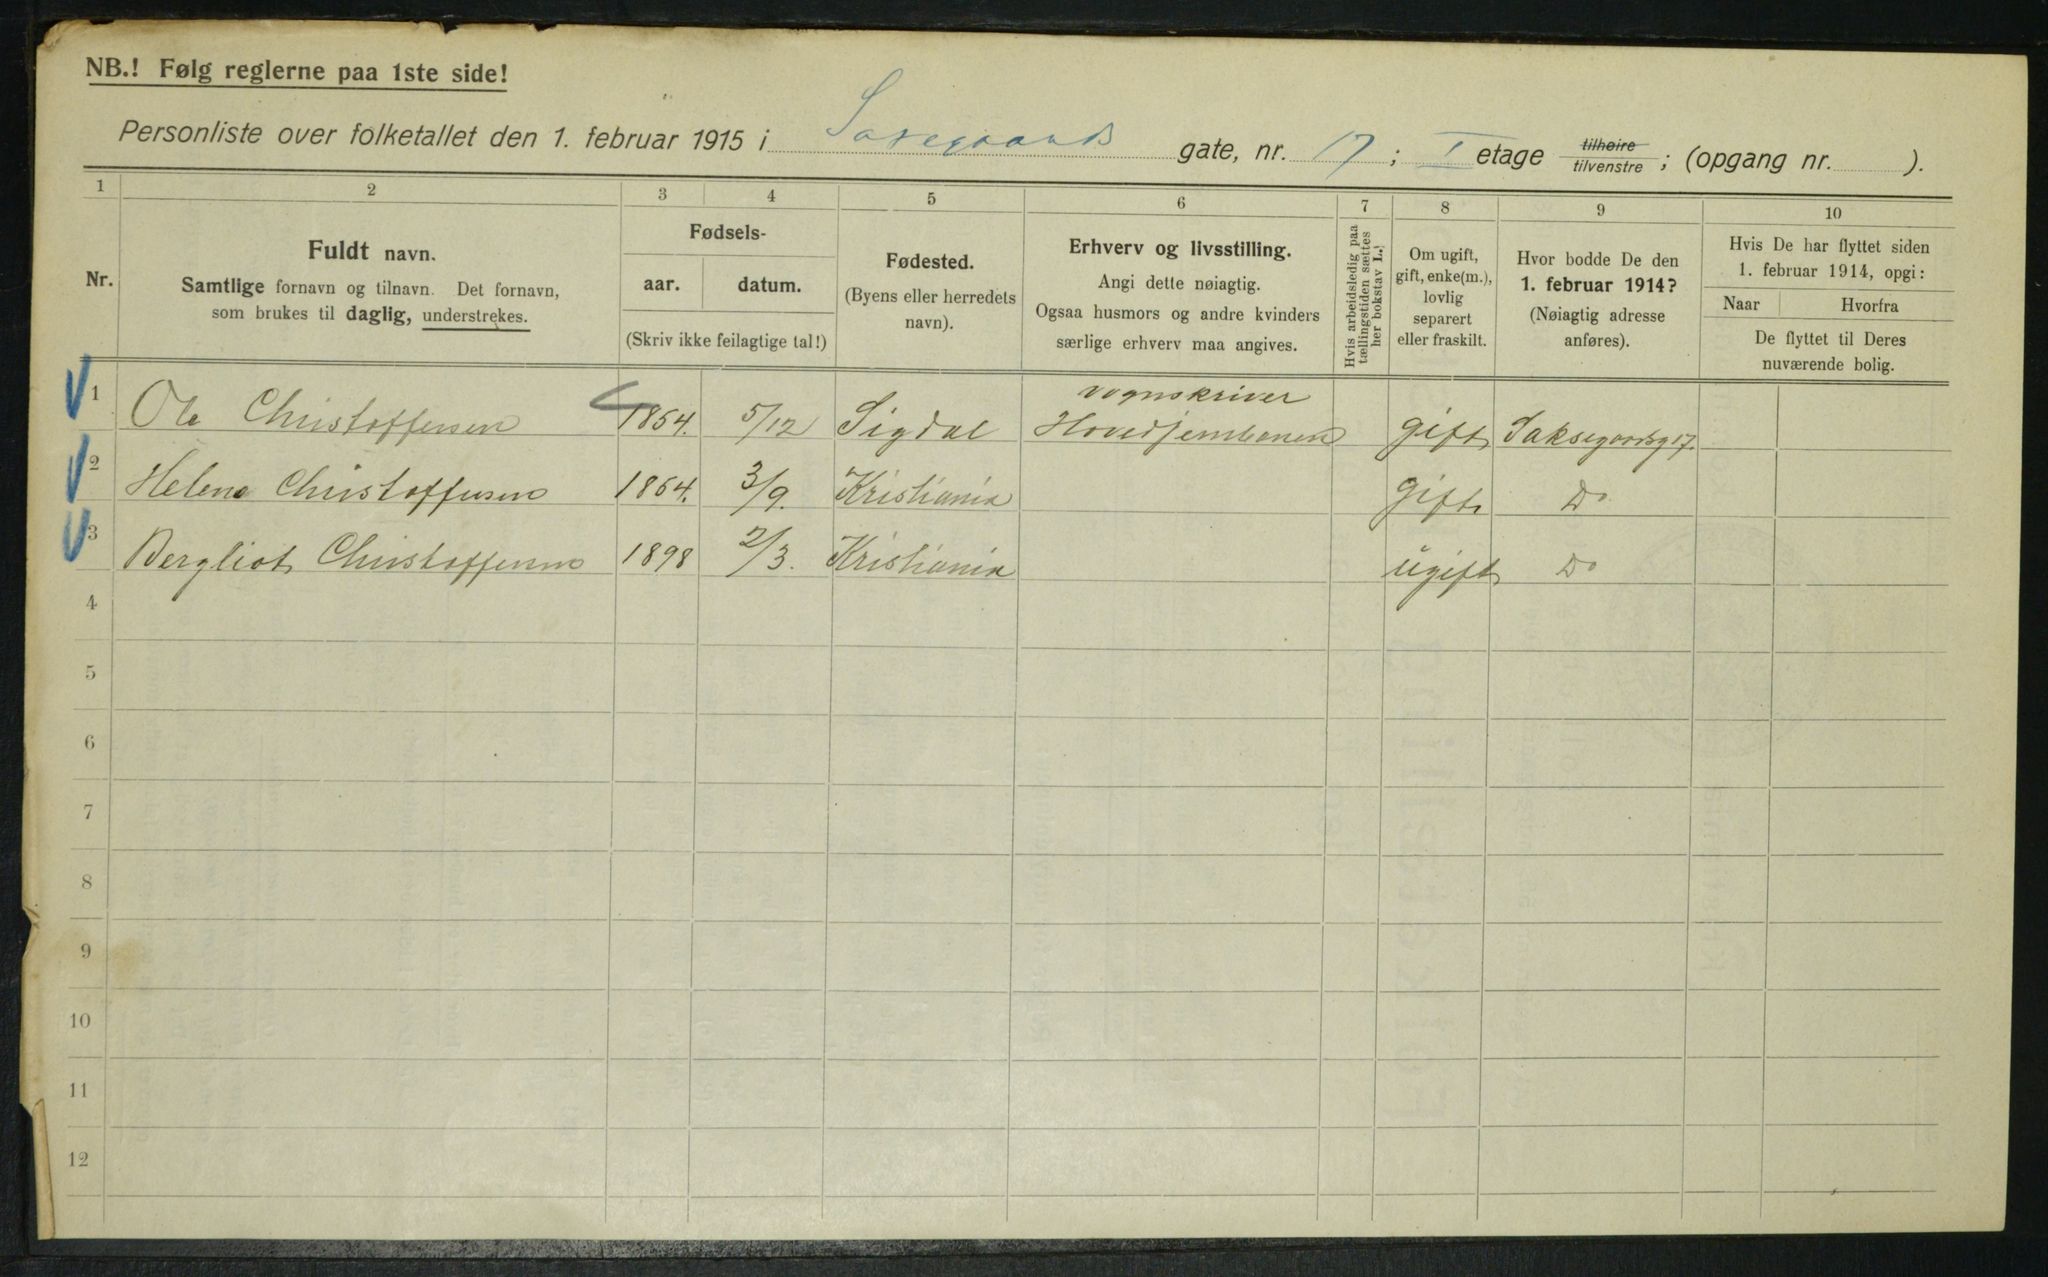 NB.! Følg reglerne paa 1ste side!
Personliste over folketallet den 1. februar 1915 i Saxegaards gate, nr. 17; I etage tilhøire / tilvenstre; (opgang nr. ).
1 2 3 4 5 6 7 8 9 10
Nr.
Fuldt navn.
Samtlige fornavn og tilnavn. Det fornavn,
som brukes til daglig, understrekes.
Fødsels-
aar. datum.
(Skriv ikke feilagtige tal!)
Fødested.
(Byens eller herredets
navn).
Erhverv og livsstilling.
Angi dette nøiagtig.
Ogsaa husmors og andre kvinders
særlige erhverv maa angives.
Hvis arbeidsledig paa
tællingstiden sættes
her bokstav L.
Om ugift,
gift, enke(m.),
lovlig
separert
eller fraskilt.
Hvor bodde De den
1. februar 1914?
(Nøiagtig adresse
anføres).
Hvis De har flyttet siden
1. februar 1914, opgi:
Naar Hvorfra
De flyttet til Deres
nuværende bolig.
vognskriver
1 Ole Christoffersen 1864. 5/12 Sigdal Hovedjernbanen gift Saksegaardsg 17.
2 Helene Christoffersen 1864. 3/9. Kristiania gift Do
3 Bergliot Christoffersen 1898 2/3. Kristiania ugift Do
4
5
6
7
8
9
10
11
12